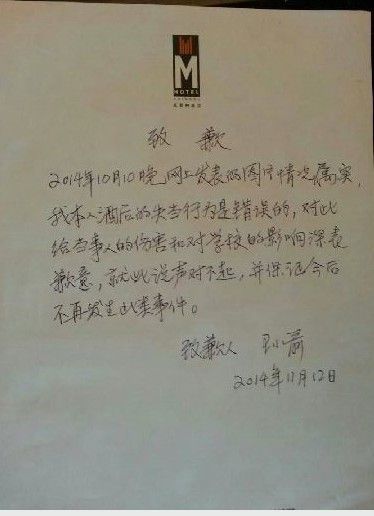 M
MOTEL
致 歉
2014年10月10晚网上发表的图片情况属实,
我本人酒后的失当行为是错误的,对此
给当事人的伤害和对学校的影响深表
歉意,就此说声对不起,并保证今后
不再发生此类事件。
致歉人
2014年11月12日